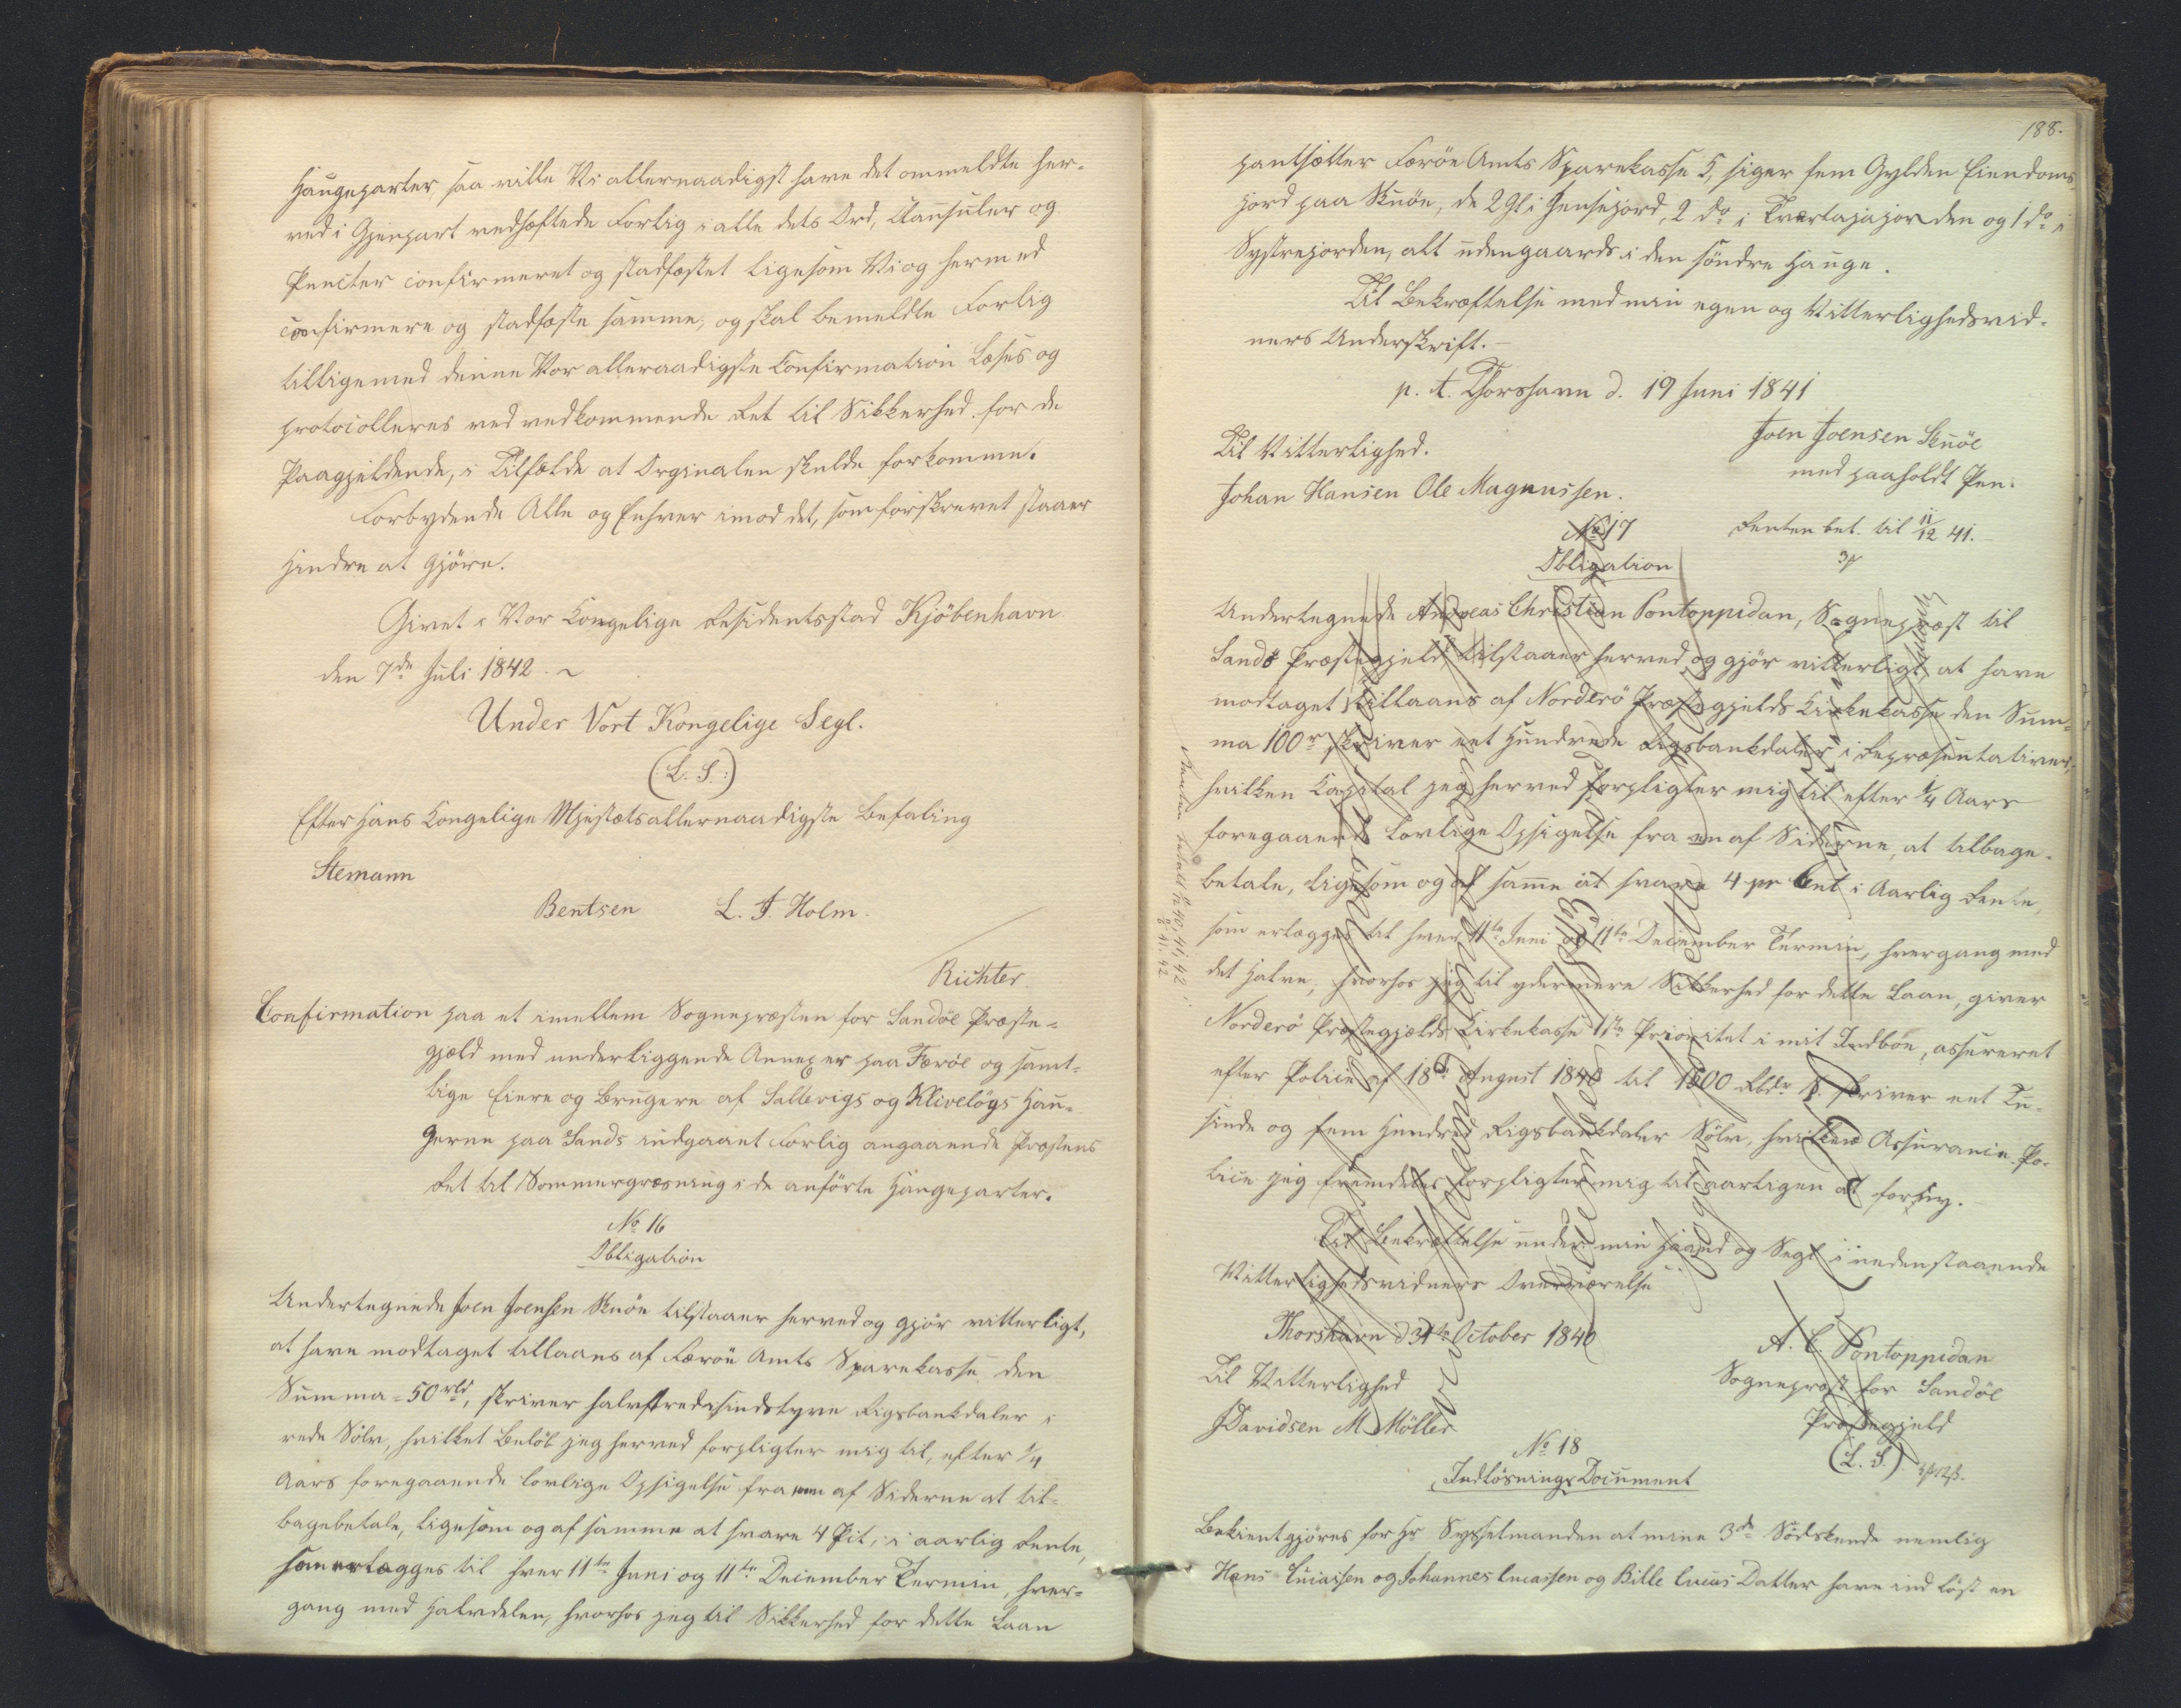 Haugeparter, saa ville Vi allernaadigst have det ommeldte her-
ved i Gjenpart vedhæftede Forlig i alle dets Ord, Clausuler og
Puncter confirmeret og stadfæstet ligesom Vi og hermed
confirmere og stadfæste samme, og skal bemeldte Forlig
tilligemed denne Vor allernaadigste Confirmation læses og
protocolleres ved vedkommende Ret til Sikkerhed for de
Paagjeldende, i Tilfælde at Orginalen skulde forkomme.
Forbydende Alle og Enhver imod det, som forskrevet staaer
Hindre at gjöre.
Givet i Vor Kongelige Residentsstad Kjöbenhavn
den 7de Juli 1842.
Under Vort Kongelige Segl.
(L. S.)
Efter Hans Kongelige Mjestæts allernaadigste Befaling
Stemann
Bentsen L. J. Holm.
Richter.
Confirmation paa et imellem Sognepræsten for Sandöe Præste-
gjæld med underliggende Annexer paa Færöe og samt-
lige Eiere og Brugere af Saltvigs og Kliveløgs Hau-
gerne paa Sands indgaaet Forlig angaaende Præstens
Ret til Sommergræsning i de anförte Haugeparter.
No 16
Obligation
Undertegnede Joen Joensen Skuöe tilstaaer herved og gjör vitterligt,
at have modtaget tillaans af Færöe Amts Sparekasse den
Summa 50 rbd, skriver halvtredsindstyve Rigsbankdaler i
rede Sölv, hvilket Belöb jeg herved forpligter mig til, efter 1/4
Aars foregaaende lovlige Opsigelse fra een af Siderne at til-
bagebetale, ligesom og af samme at svare 4 Pct, i aarlig Rente,
som erlægges til hver 11te Juni og 11te December Termin, hver-
gang med Halvdelen, hvorhos jeg til Sikkerhed for dette Laan
188.
pantsætter Færöe Amts Sparekasse 5, siger fem Gylden Eiendoms-
jord paa Skuöe, de 2 Gl i Hensejord, 2 do i Tvertajajorden og 1 do i
Systrejorden, alt udengaards i den söndre Hauge.
Til Bekræftelse med min egen og Vitterlighedsvid-
ners Underskrift.
p. t. Thorshavn d. 19 Juni 1841
Joen Joensen Skuöe
med paaholdt Pen.
Til Vitterlighed.
Johan Hansen Ole Magnussen.
No 17
Renten bet. til 11/12 41.
Obligation
Undertegnede Andreas Christian Pontoppidan, Sognepræst til
Sandö Præstegjeld, tilstaaer herved og gjör vitterligt, at have
modtaget tillaans af Norderö Præstegjelds Kirkekasse den Sum-
ma 100 r skriver eet Hundrede Rigsbankdaler i Repræsentativer,
hvilken Kapital jeg herved forpligter mig til efter 1/4 Aars
foregaaende lovlige Opsigelse fra en af Siderne, at tilbage-
betale, ligesom og af samme at svare 4 pr Cent i Aarlig Rente,
som erlægges til hver 11te Juni og 11te December Termin, hvergang med
det Halve, hvorhos jeg til ydermere Sikkerhed for dette Laan, giver
Norderö Præstegjelds Kirkekasse 1ste Prioritet i mit Indboe, assureret
efter Police af 18de August 1840 til 1500 Rbdr S. skriver eet Tu-
sinde og fem Hundred Rigsbankdaler Sölv, hvilken Assurance-Po-
lice jeg fremdeles forpligter mig til aarligen at forny.
Til Bekræftelse under min Haand og Segl i nedenstaaende
Vitterlighedsvidners Overværelse
Thorshavn d 31te October 1840
A. C. Pontoppidan
Sognepræst for Sandöe
Præstegjeld
(L. S.)
Til Vitterlighed
J Davidsen M Möller
No 18
Indlösnings Document
Bekientgjöres for Hr Sysselmanden at mine 3de Södskende nemlig
Hans Lucassen og Johannes Lucassen og Bille Lucas Datter have indlöst en